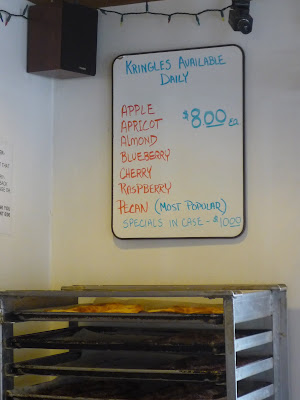 KRINGLES AVAILABLE
DAILY
APPLE
APRICOT $8.00 EA
ALMOND
BLUEBERRY
CHERRY
RASPBERRY
PECAN (MOST POPULAR)
SPECIALS IN CASE - $10.00